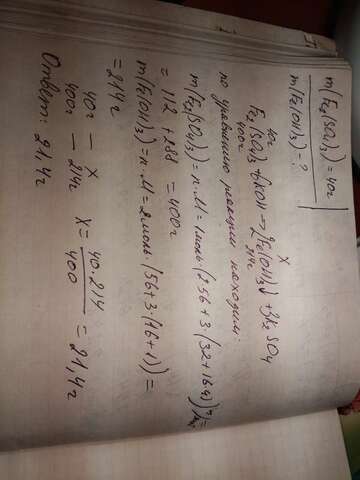 m(Fe₂(SO₄)₃) = 40г
m(Fe(OH)₃) - ?
40г x
Fe₂(SO₄)₃ + 6KOH → 2Fe(OH)₃↓ + 3K₂SO₄
400г 214г
по уравнению реакции находим:
m(Fe₂(SO₄)₃) = n·M = 1моль·(2·56+3·(32+16·4)) =
= 112 + 288 = 400г
m(Fe(OH)₃) = n·M = 2моль·(56+3·(16+1)) =
= 214г
40г — x x = 40·214/400 = 21,4г
400г — 214г
Ответ: 21,4г